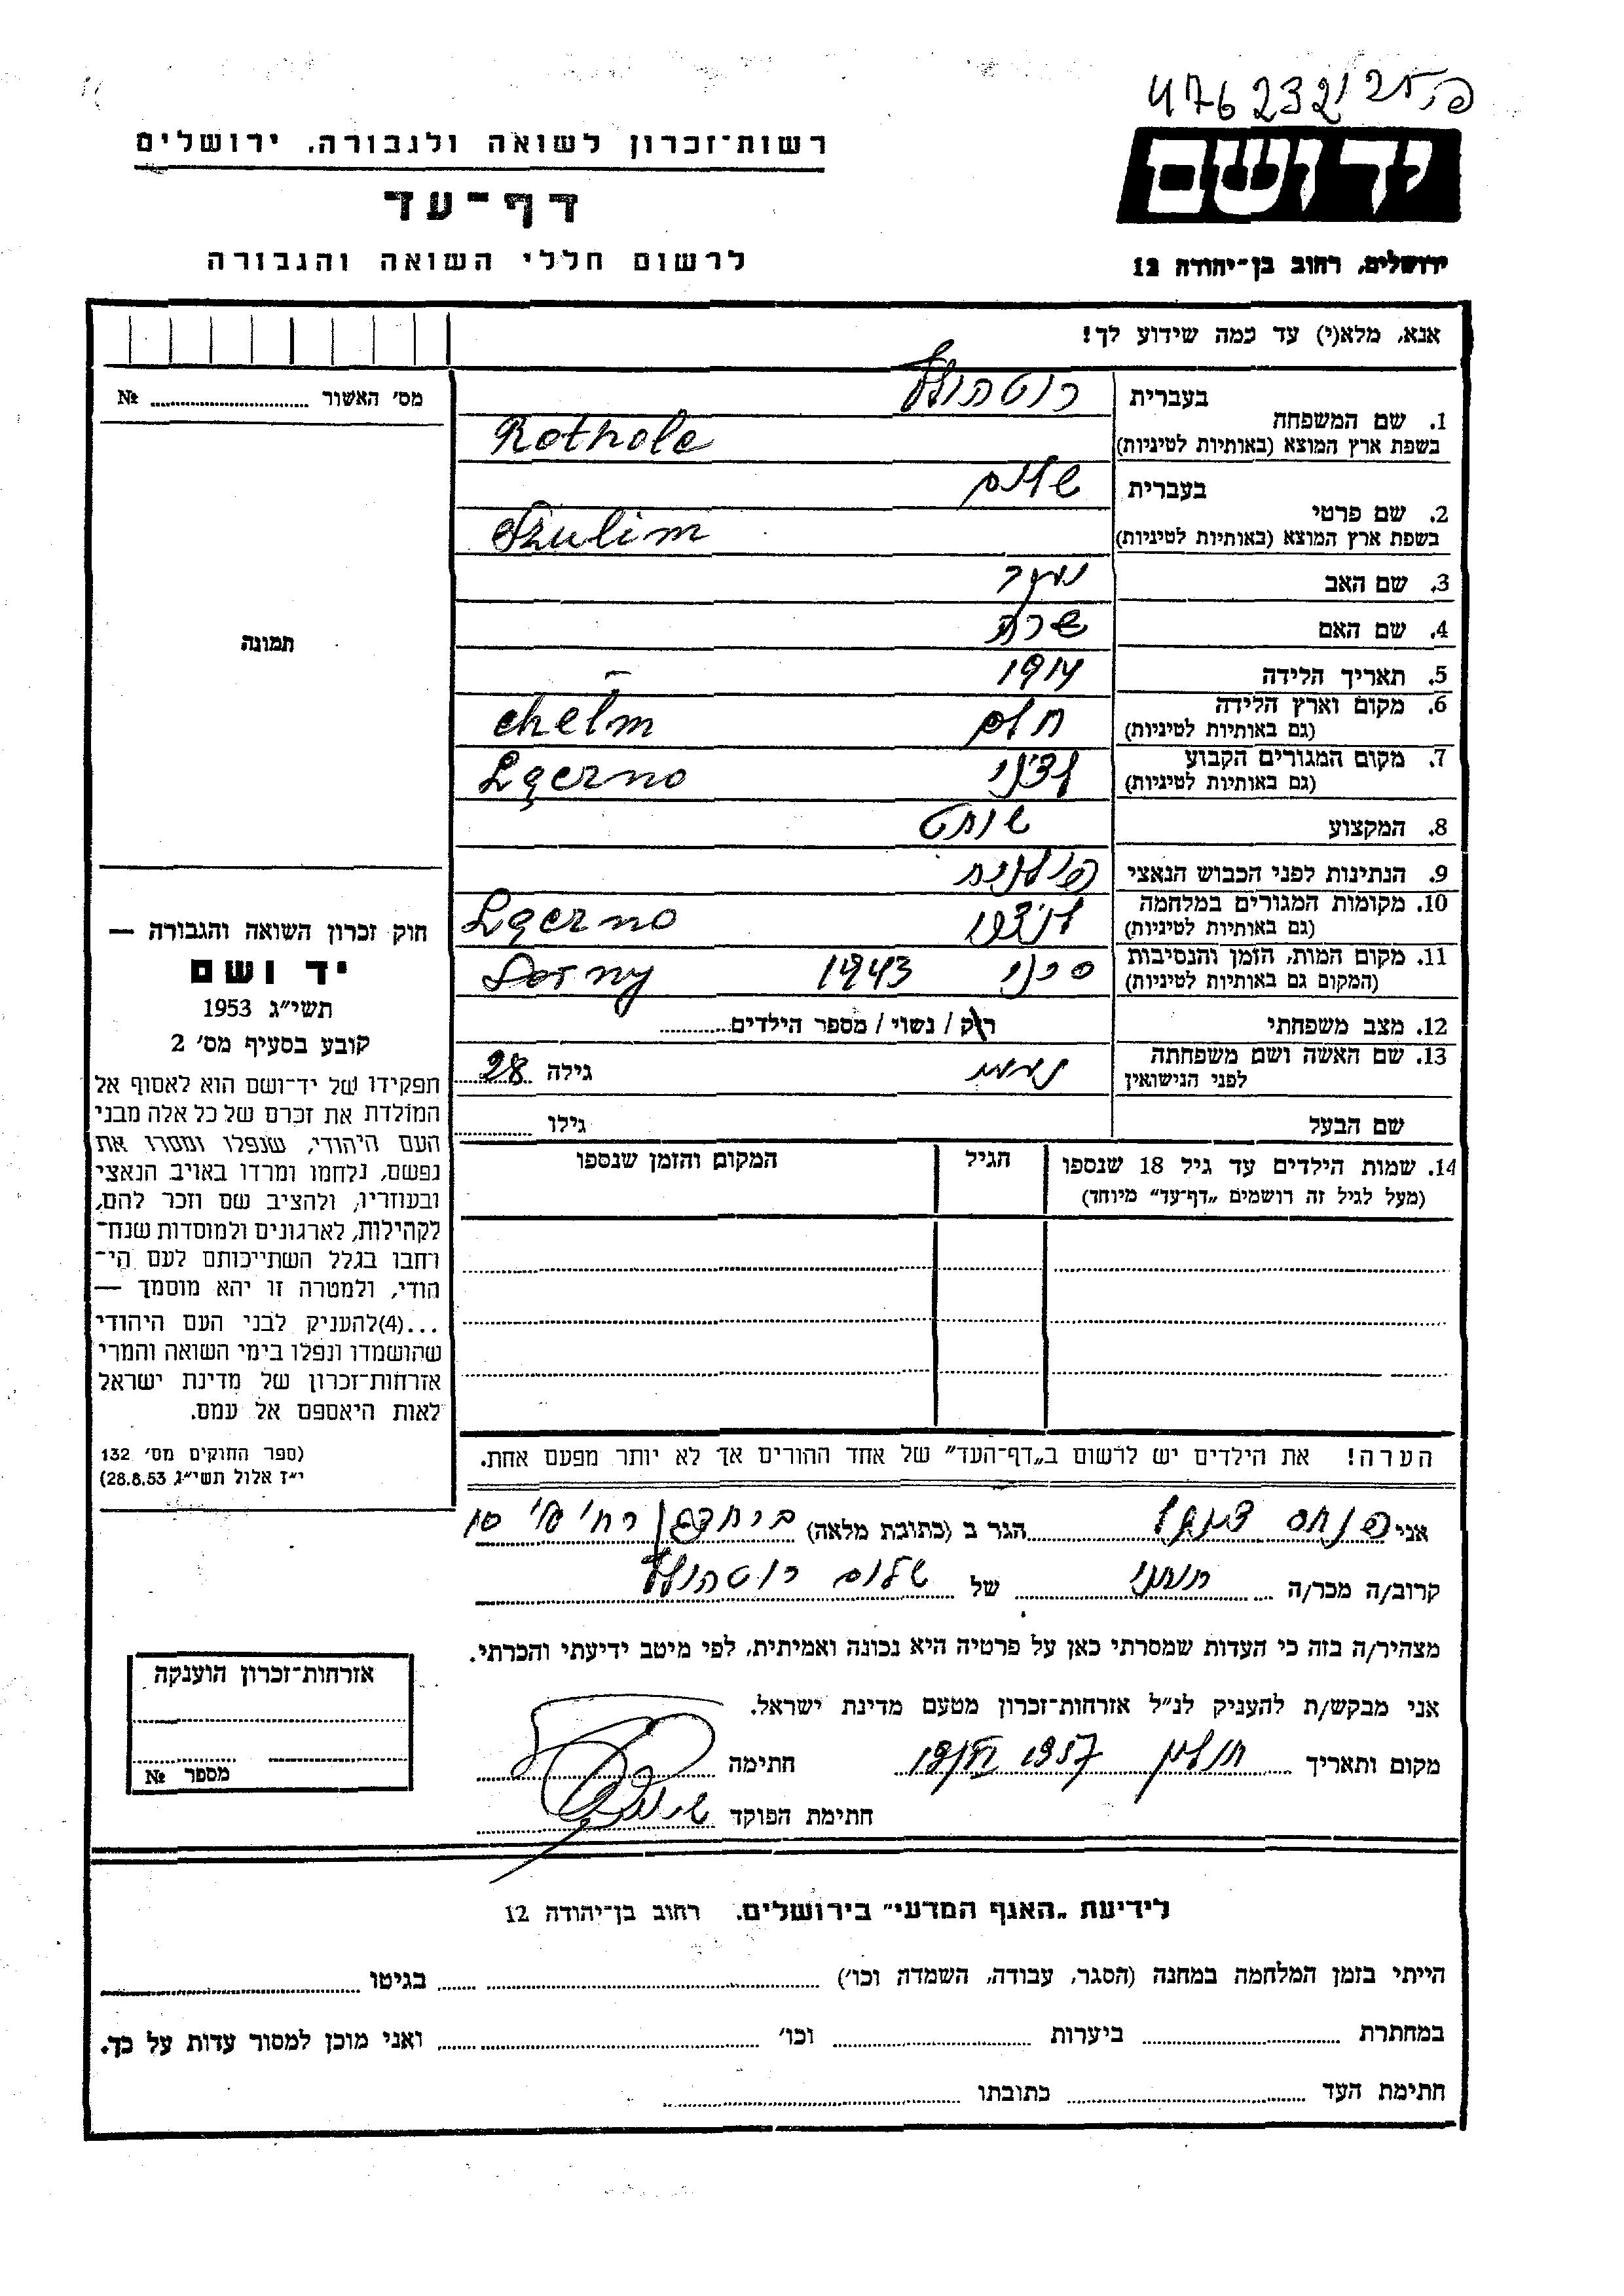 476232/
רשות־זכרון לשואה ולגבורה. ירושלים
דף־עד
לרשום חללי השואה והגבורה
יד ושם
ירושלים, רחוב בן־יהודה 12
אנא, מלא(י) עד כמה שידוע לך!
מס׳ האשור № ..........
תמונה
1. שם המשפחה
בעברית רוטהולץ
בשפת ארץ המוצא (באותיות לטיניות) Rothole
2. שם פרטי
בעברית שלום
בשפת ארץ המוצא (באותיות לטיניות) Szulim
3. שם האב
4. שם האם שרה
5. תאריך הלידה 1914
6. מקום וארץ הלידה
(גם באותיות לטיניות) חלם chelm
7. מקום המגורים הקבוע
(גם באותיות לטיניות) Lęerno
8. המקצוע שוחט
9. הנתינות לפני הכבוש הנאצי פולנית
10. מקומות המגורים במלחמה
(גם באותיות לטיניות) Lęerno
11. מקום המות, הזמן והנסיבות
(המקום גם באותיות לטיניות) סרני 1943 Sorny
12. מצב משפחתי רוק / נשוי / מספר הילדים..........
13. שם האשה ושם משפחתה
לפני הנישואין גילה 28
שם הבעל גילו ..........
14. שמות הילדים עד גיל 18 שנספו
(מעל לגיל זה רושמים „דף־עד” מיוחד)
הגיל
המקום והזמן שנספו
הערה! את הילדים יש לרשום ב„דף־העד” של אחד ההורים אך לא יותר מפעם אחת.
חוק זכרון השואה והגבורה —
יד ושם
תשי״ג 1953
קובע בסעיף מס׳ 2
תפקידו של יד־ושם הוא לאסוף אל
המולדת את זכרם של כל אלה מבני
העם היהודי, שנפלו ומסרו את
נפשם, נלחמו ומרדו באויב הנאצי
ובעוזריו, ולהציב שם וזכר להם,
לקהילות, לארגונים ולמוסדות שנח־
רחבו בגלל השתייכותם לעם הי־
הודי, ולמטרה זו יהא מוסמך —
...(4)להעניק לבני העם היהודי
שהושמדו ונפלו בימי השואה והמרי
אזרחות־זכרון של מדינת ישראל
לאות היאספם אל עמם.
(ספר החוקים מס׳ 132
י״ז אלול תשי״ג 28.8.53)
אני פנחס הגר ב (כתובת מלאה)
קרוב/ה מכר/ה של שלום רוטהולץ
מצהיר/ה בזה כי העדות שמסרתי כאן על פרטיה היא נכונה ואמיתית, לפי מיטב ידיעתי והכרתי.
אני מבקש/ת להעניק לנ״ל אזרחות־זכרון מטעם מדינת ישראל.
מקום ותאריך חולון 1957 חתימה
חתימת הפוקד
אזרחות־זכרון הוענקה
מספר №
לידיעת „האגף המדעי” בירושלים. רחוב בן־יהודה 12
הייתי בזמן המלחמה במחנה (הסגר, עבודה, השמדה וכו׳) .......... בגיטו ..........
במחתרת .......... ביערות .......... וכו׳ .......... ואני מוכן למסור עדות על כך.
חתימת העד .......... כתובתו ..........